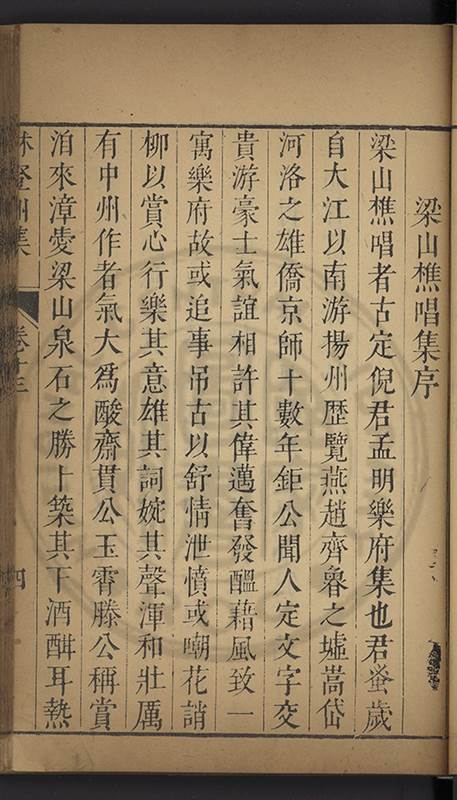 梁山樵唱集序
梁山樵唱者古定倪君孟明樂府集也君蚤歲
自大江以南游揚州歷覽燕趙齊魯之墟嵩岱
河洛之雄僑京師十數年鉅公聞人定文字交
貴游豪士氣誼相許其偉邁奮發醞藉風致一
寓樂府故或追事吊古以舒情泄憤或嘲花誚
柳以賞心行樂其意雄其詞婉其聲渾和壯厲
有中州作者氣大為酸齋貫公玉霄滕公稱賞
洎來漳愛梁山泉石之勝卜築其下酒酣耳熱
林登州集
卷十三
四